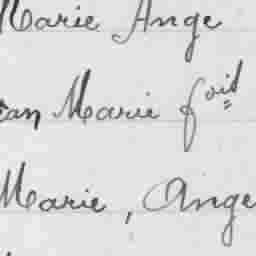 Marie Ange
ean Marie foid
Marie, Ange